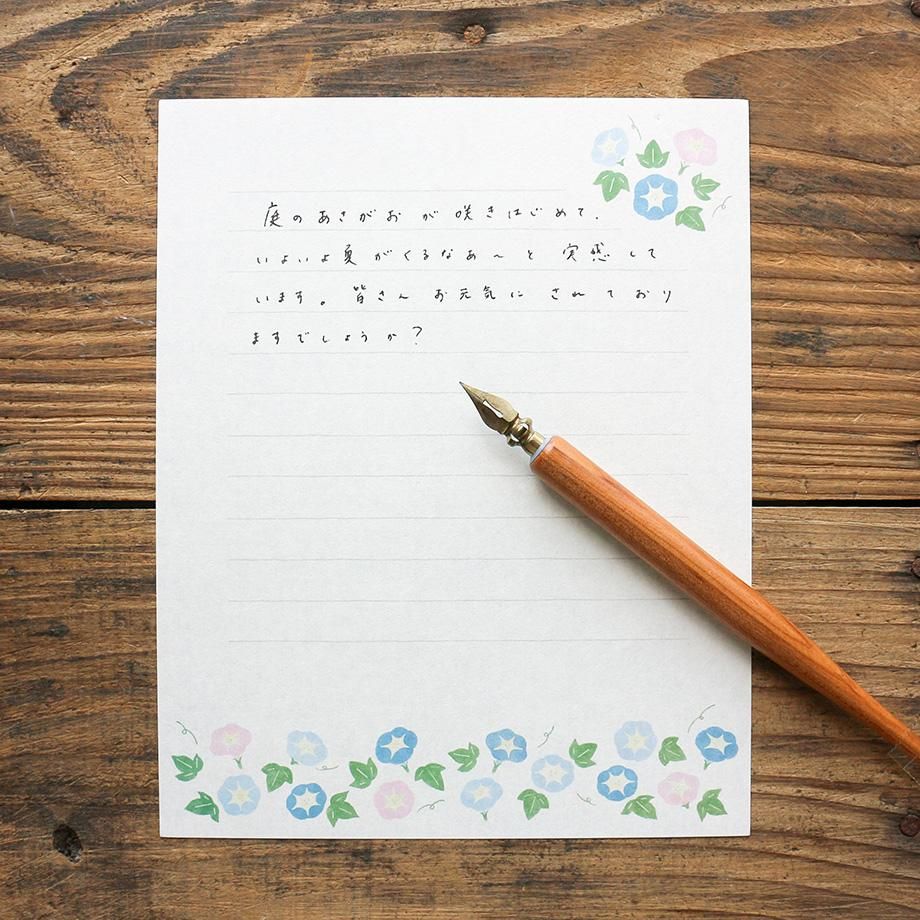 庭のあさがおが咲きはじめて、
いよいよ夏がくるなあ〜と実感して
います。皆さんお元気にされており
ますでしょうか?